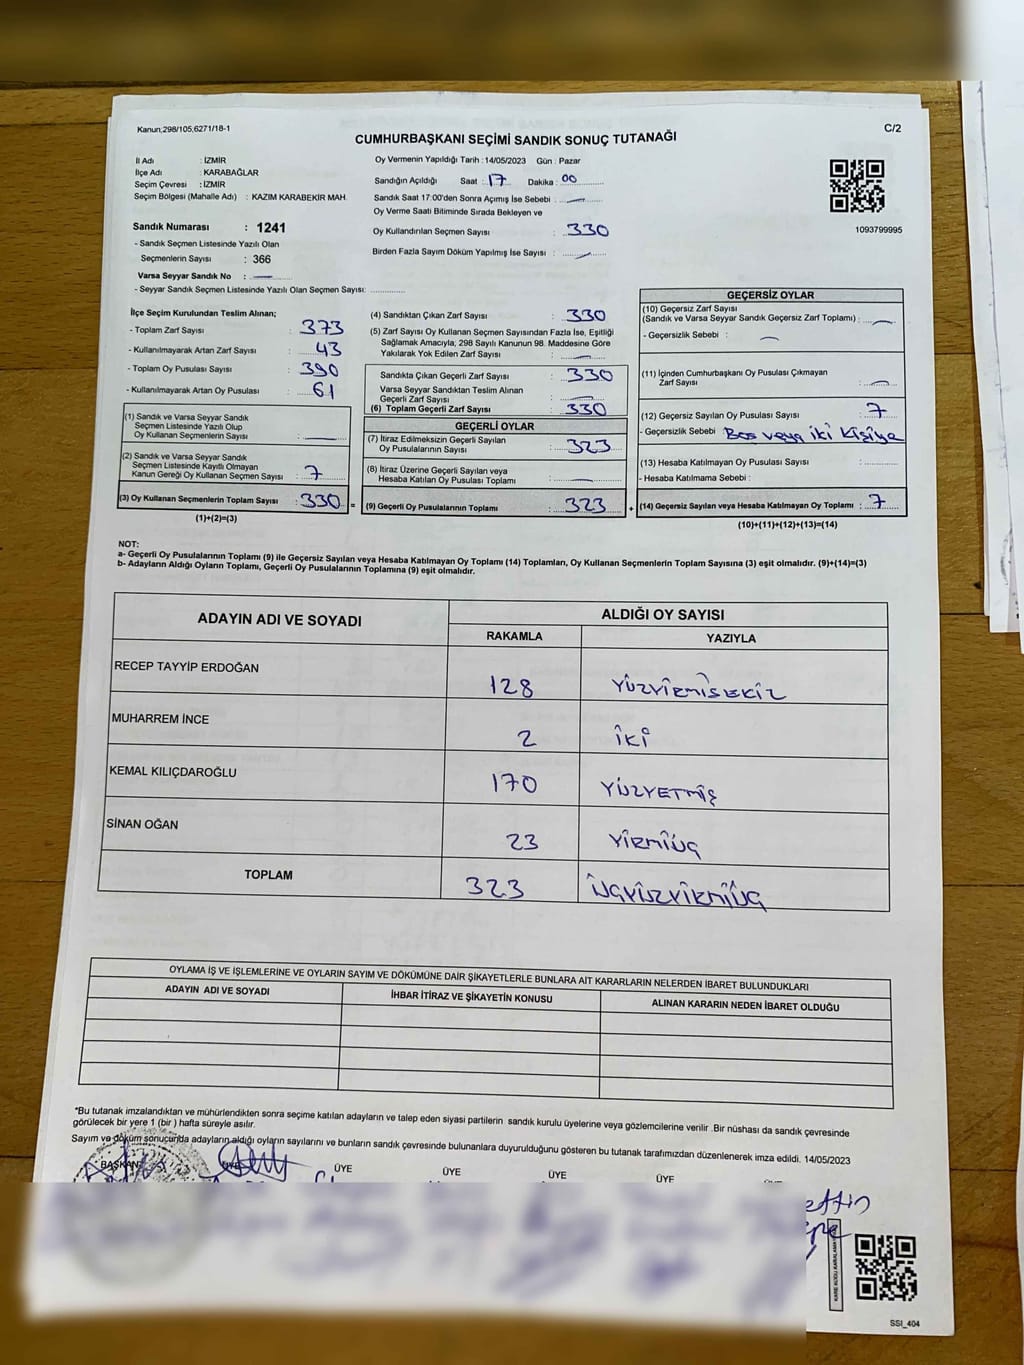 Kanun;298/105,6271/18-1
C/2
CUMHURBAŞKANI SEÇİMİ SANDIK SONUÇ TUTANAĞI
İl Adı : İZMİR
İlçe Adı : KARABAĞLAR
Seçim Çevresi : İZMİR
Seçim Bölgesi (Mahalle Adı) : KAZIM KARABEKİR MAH.
Sandık Numarası : 1241
- Sandık Seçmen Listesinde Yazılı Olan
Seçmenlerin Sayısı : 366
Varsa Seyyar Sandık No : —
- Seyyar Sandık Seçmen Listesinde Yazılı Olan Seçmen Sayısı:
Oy Vermenin Yapıldığı Tarih :14/05/2023 Gün : Pazar
Sandığın Açıldığı Saat : 17 Dakika : 00
Sandık Saat 17:00'den Sonra Açımış İse Sebebi : —
Oy Verme Saati Bitiminde Sırada Bekleyen ve
Oy Kullandırılan Seçmen Sayısı : 330
Birden Fazla Sayım Döküm Yapılmış İse Sayısı : —
1093799995
İlçe Seçim Kurulundan Teslim Alınan;
- Toplam Zarf Sayısı : 373
- Kullanılmayarak Artan Zarf Sayısı : 43
- Toplam Oy Pusulası Sayısı : 390
- Kullanılmayarak Artan Oy Pusulası : 61
(1) Sandık ve Varsa Seyyar Sandık
Seçmen Listesinde Yazılı Olup
Oy Kullanan Seçmenlerin Sayısı : —
(2) Sandık ve Varsa Seyyar Sandık
Seçmen Listesinde Kayıtlı Olmayan
Kanun Gereği Oy Kullanan Seçmen Sayısı : 7
(3) Oy Kullanan Seçmenlerin Toplam Sayısı : 330 =
(1)+(2)=(3)
(4) Sandıktan Çıkan Zarf Sayısı : 330
(5) Zarf Sayısı Oy Kullanan Seçmen Sayısından Fazla İse, Eşitliği
Sağlamak Amacıyla; 298 Sayılı Kanunun 98. Maddesine Göre
Yakılarak Yok Edilen Zarf Sayısı : —
Sandıkta Çıkan Geçerli Zarf Sayısı : 330
Varsa Seyyar Sandıktan Teslim Alınan
Geçerli Zarf Sayısı : —
(6) Toplam Geçerli Zarf Sayısı : 330
GEÇERLİ OYLAR
(7) İtiraz Edilmeksizin Geçerli Sayılan
Oy Pusulalarının Sayısı : 323
(8) İtiraz Üzerine Geçerli Sayılan veya
Hesaba Katılan Oy Pusulası Toplamı : —
(9) Geçerli Oy Pusulalarının Toplamı : 323 +
GEÇERSİZ OYLAR
(10) Geçersiz Zarf Sayısı
(Sandık ve Varsa Seyyar Sandık Geçersiz Zarf Toplamı) : —
- Geçersizlik Sebebi : —
(11) İçinden Cumhurbaşkanı Oy Pusulası Çıkmayan
Zarf Sayısı : —
(12) Geçersiz Sayılan Oy Pusulası Sayısı : 7
- Geçersizlik Sebebi Boş veya iki kişiye
(13) Hesaba Katılmayan Oy Pusulası Sayısı :
- Hesaba Katılmama Sebebi :
(14) Geçersiz Sayılan veya Hesaba Katılmayan Oy Toplamı : 7
(10)+(11)+(12)+(13)=(14)
NOT:
a- Geçerli Oy Pusulalarının Toplamı (9) ile Geçersiz Sayılan veya Hesaba Katılmayan Oy Toplamı (14) Toplamları, Oy Kullanan Seçmenlerin Toplam Sayısına (3) eşit olmalıdır. (9)+(14)=(3)
b- Adayların Aldığı Oyların Toplamı, Geçerli Oy Pusulalarının Toplamına (9) eşit olmalıdır.
ADAYIN ADI VE SOYADI ALDIĞI OY SAYISI
RAKAMLA YAZIYLA
RECEP TAYYİP ERDOĞAN 128 YÜZYİRMİSEKİZ
MUHARREM İNCE 2 İKİ
KEMAL KILIÇDAROĞLU 170 YÜZYETMİŞ
SİNAN OĞAN 23 YİRMİÜÇ
TOPLAM 323 ÜÇYÜZYİRMİÜÇ
OYLAMA İŞ VE İŞLEMLERİNE VE OYLARIN SAYIM VE DÖKÜMÜNE DAİR ŞİKAYETLERLE BUNLARA AİT KARARLARIN NELERDEN İBARET BULUNDUKLARI
ADAYIN ADI VE SOYADI İHBAR İTİRAZ VE ŞİKAYETİN KONUSU ALINAN KARARIN NEDEN İBARET OLDUĞU
*Bu tutanak imzalandıktan ve mühürlendikten sonra seçime katılan adayların ve talep eden siyasi partilerin sandık kurulu üyelerine veya gözlemcilerine verilir .Bir nüshası da sandık çevresinde
görülecek bir yere 1 (bir ) hafta süreyle asılır.
Sayım ve döküm sonucunda adayların aldığı oyların sayılarını ve bunların sandık çevresinde bulunanlara duyurulduğunu gösteren bu tutanak tarafımızdan düzenlenerek imza edildi. 14/05/2023
BAŞKAN ÜYE ÜYE ÜYE ÜYE ÜYE
SSI_404